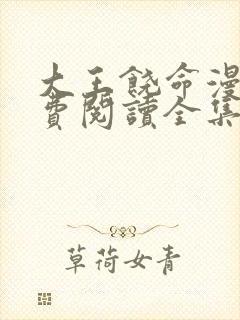 大王饶命漫
費閱讀全集
草荷女青